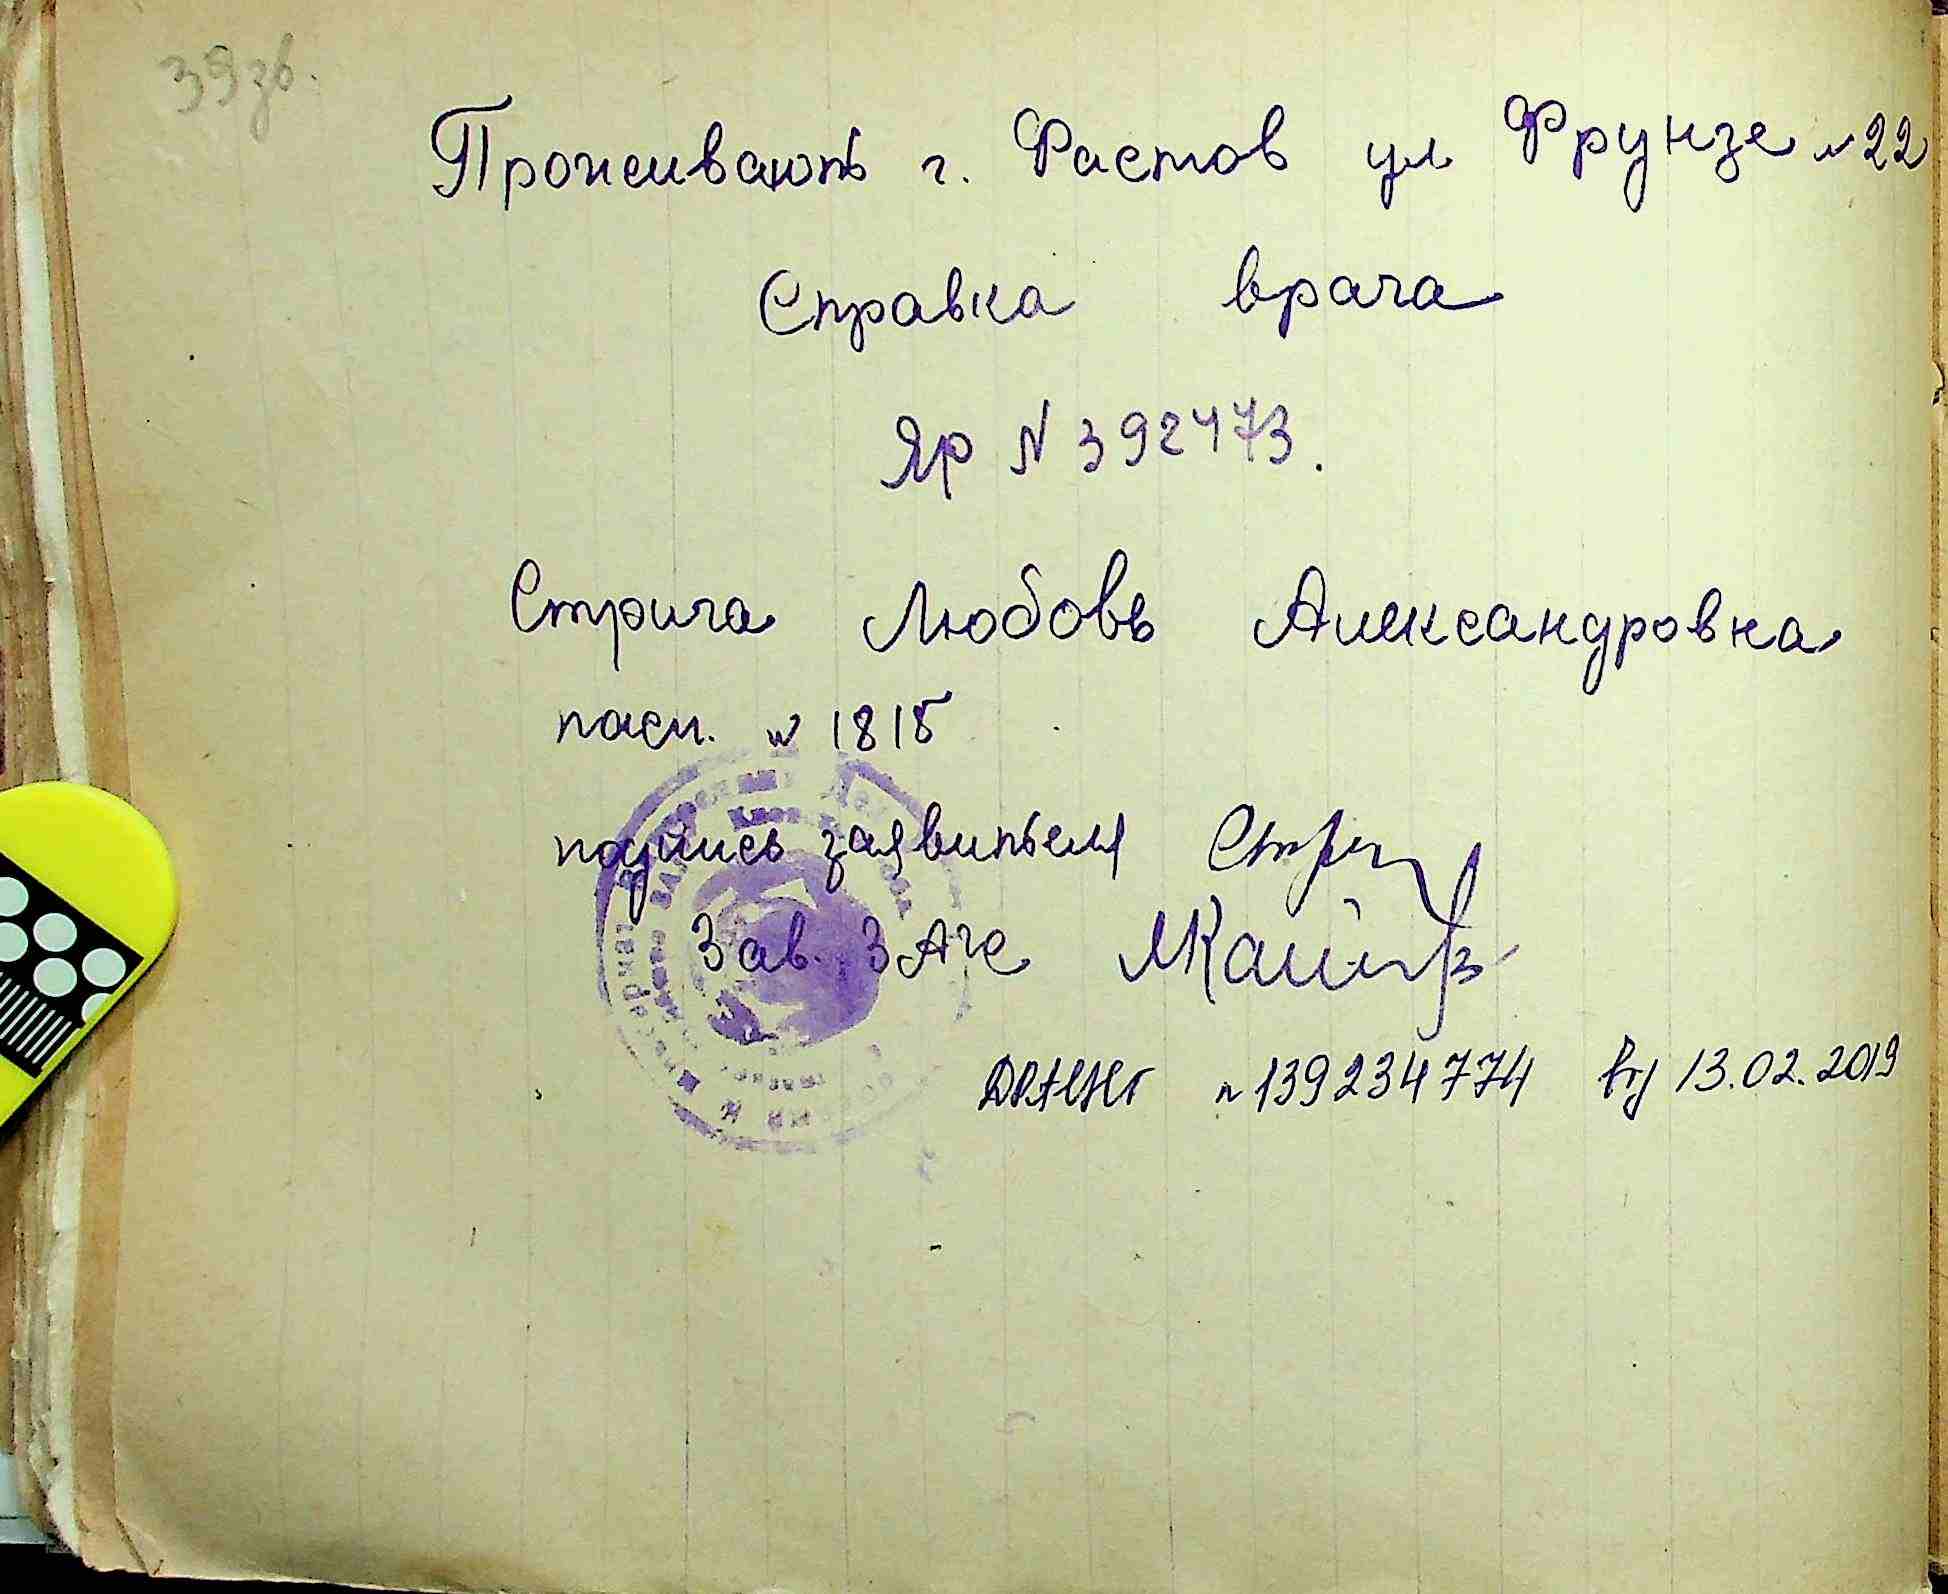 39зв.
Проживают г. Фастов ул Фрунзе № 22
Справка врача
ЯР № 392473.
Стрига Любовь Александровна
пасп. № 1815
подпись заявителя Стри
Зав. ЗАГС
ДРАЦСГ № 139234774 від 13.02.2019